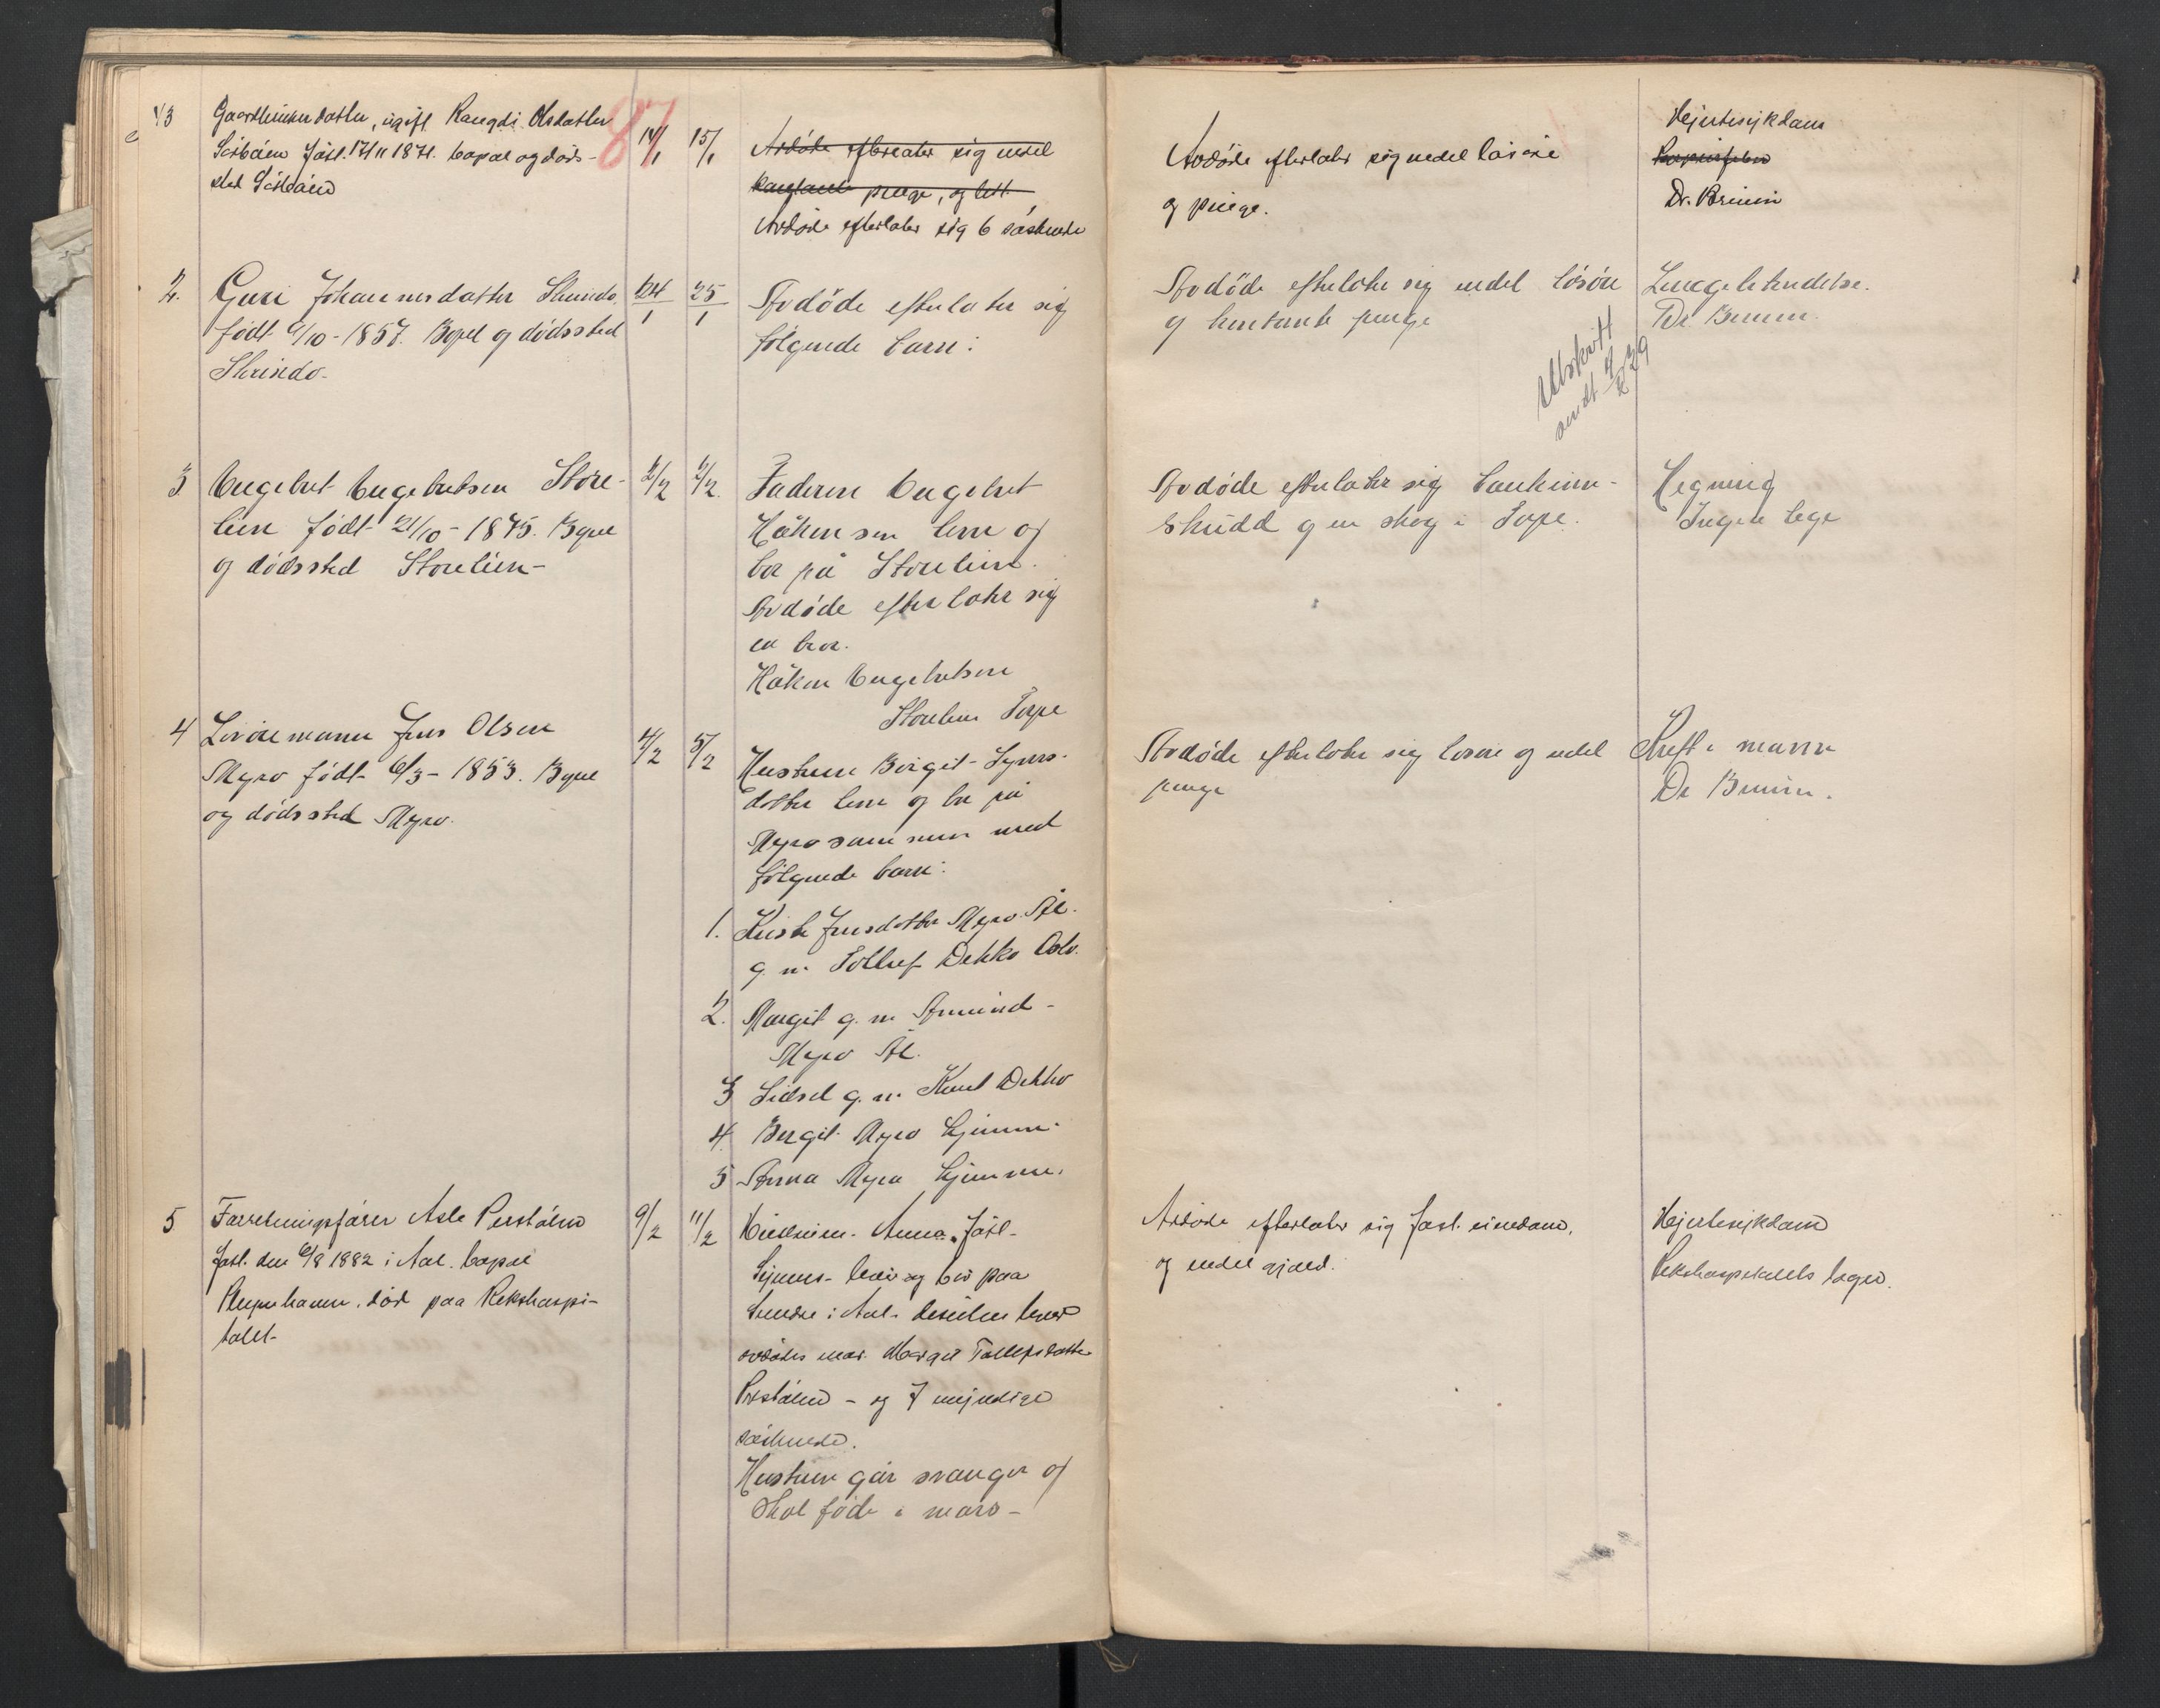 Gaardbrukerdatter, ugift Rangdi Olsdatter
født 1871. bopæl og døds-
sted
87
14/1
15/1
Avdøde efterlater sig endel
penge, og
Avdøde efterlater sig 6 søskende
Avdøde efterlater sig endel løsøre
og penge.
Hjertesykdom
Dr. Bruun
2.
Guri Johannesdatter Skrindo
født 9/10 - 1857. Bopel og dødssted
Skrindo
24/1
25/1
Avdøde efterlater sig
følgende barn:
Avdøde efterlater sig endel løsøre
og kontante penge
Utskrift
sendt 4/2 39
Lungebetendelse.
Dr Bruun.
3
Engebret Engebretsen Store-
lien født 21/10 - 1875. Bopel
og dødssted Storelien
2/2
Faderen Engebret
Håkensen lever og
bor på Storelien.
Avdøde efterlater sig
en bror.
Håken Engebretsen
Storelien Torpe
Avdøde efterlater sig bankinn-
skudd og en skog i Torpe.
Hegning
Ingen lege
4
Jens Olsen
Myro født 6/3 - 1853. Bopel
og dødssted Myro.
4/2
5/2
Hustruen Birgit Syvers-
datter lever og bor på
Myro sammen med
følgende barn:
1. Kristi Jensdatter Myro Ål.
g. m. Tollef Dekko Oslo.
2. Margit g. m. Amund
Myro Ål.
3 Sidsel g. m. Knut Dekko
4. Bergit Myro hjemme.
5 Anna Myro hjemme.
Avdøde efterlater sig løsøre og endel
penge
Kreft i maven
Dr Bruun.
5
Forretningsfører Asle Perstølen
født den 6/8 1882 i Aal. bopæl
død paa Rikshospi-
talet
9/2
11/2
Anna født
lever og bor paa
i Aal. Desuten lever
avdødes mor Margit Tollefsdatter
Perstølen - og 7 myndige
søskende.
Hustruen går svanger og
skal føde i mars -
Avdøde efterlater sig fast eiendom,
og endel gjæld.
Hjertesykdom
Rikshospitalets læger.